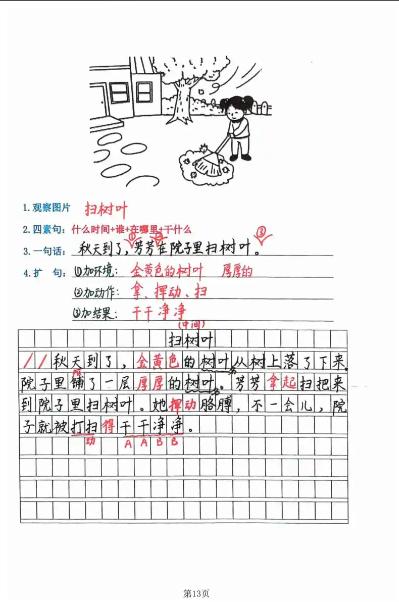 1.观察图片 扫树叶
2.四素句：什么时间+谁+在哪里+干什么
① ② ③
3.一句话：秋天到了，芳芳在院子里扫树叶。
4.扩 句：①加环境：金黄色的树叶 厚厚的
②加动作：拿、挥动、扫
③加结果：干干净净
(中间)
扫树叶
//秋天到了，金黄色的树叶从树上落了下来。
院子里铺了一层厚厚的树叶。芳芳拿起扫把来
到院子里扫树叶。她挥动胳膊，不一会儿，院
子就被打扫得干干净净。
动 A A B B
第13页